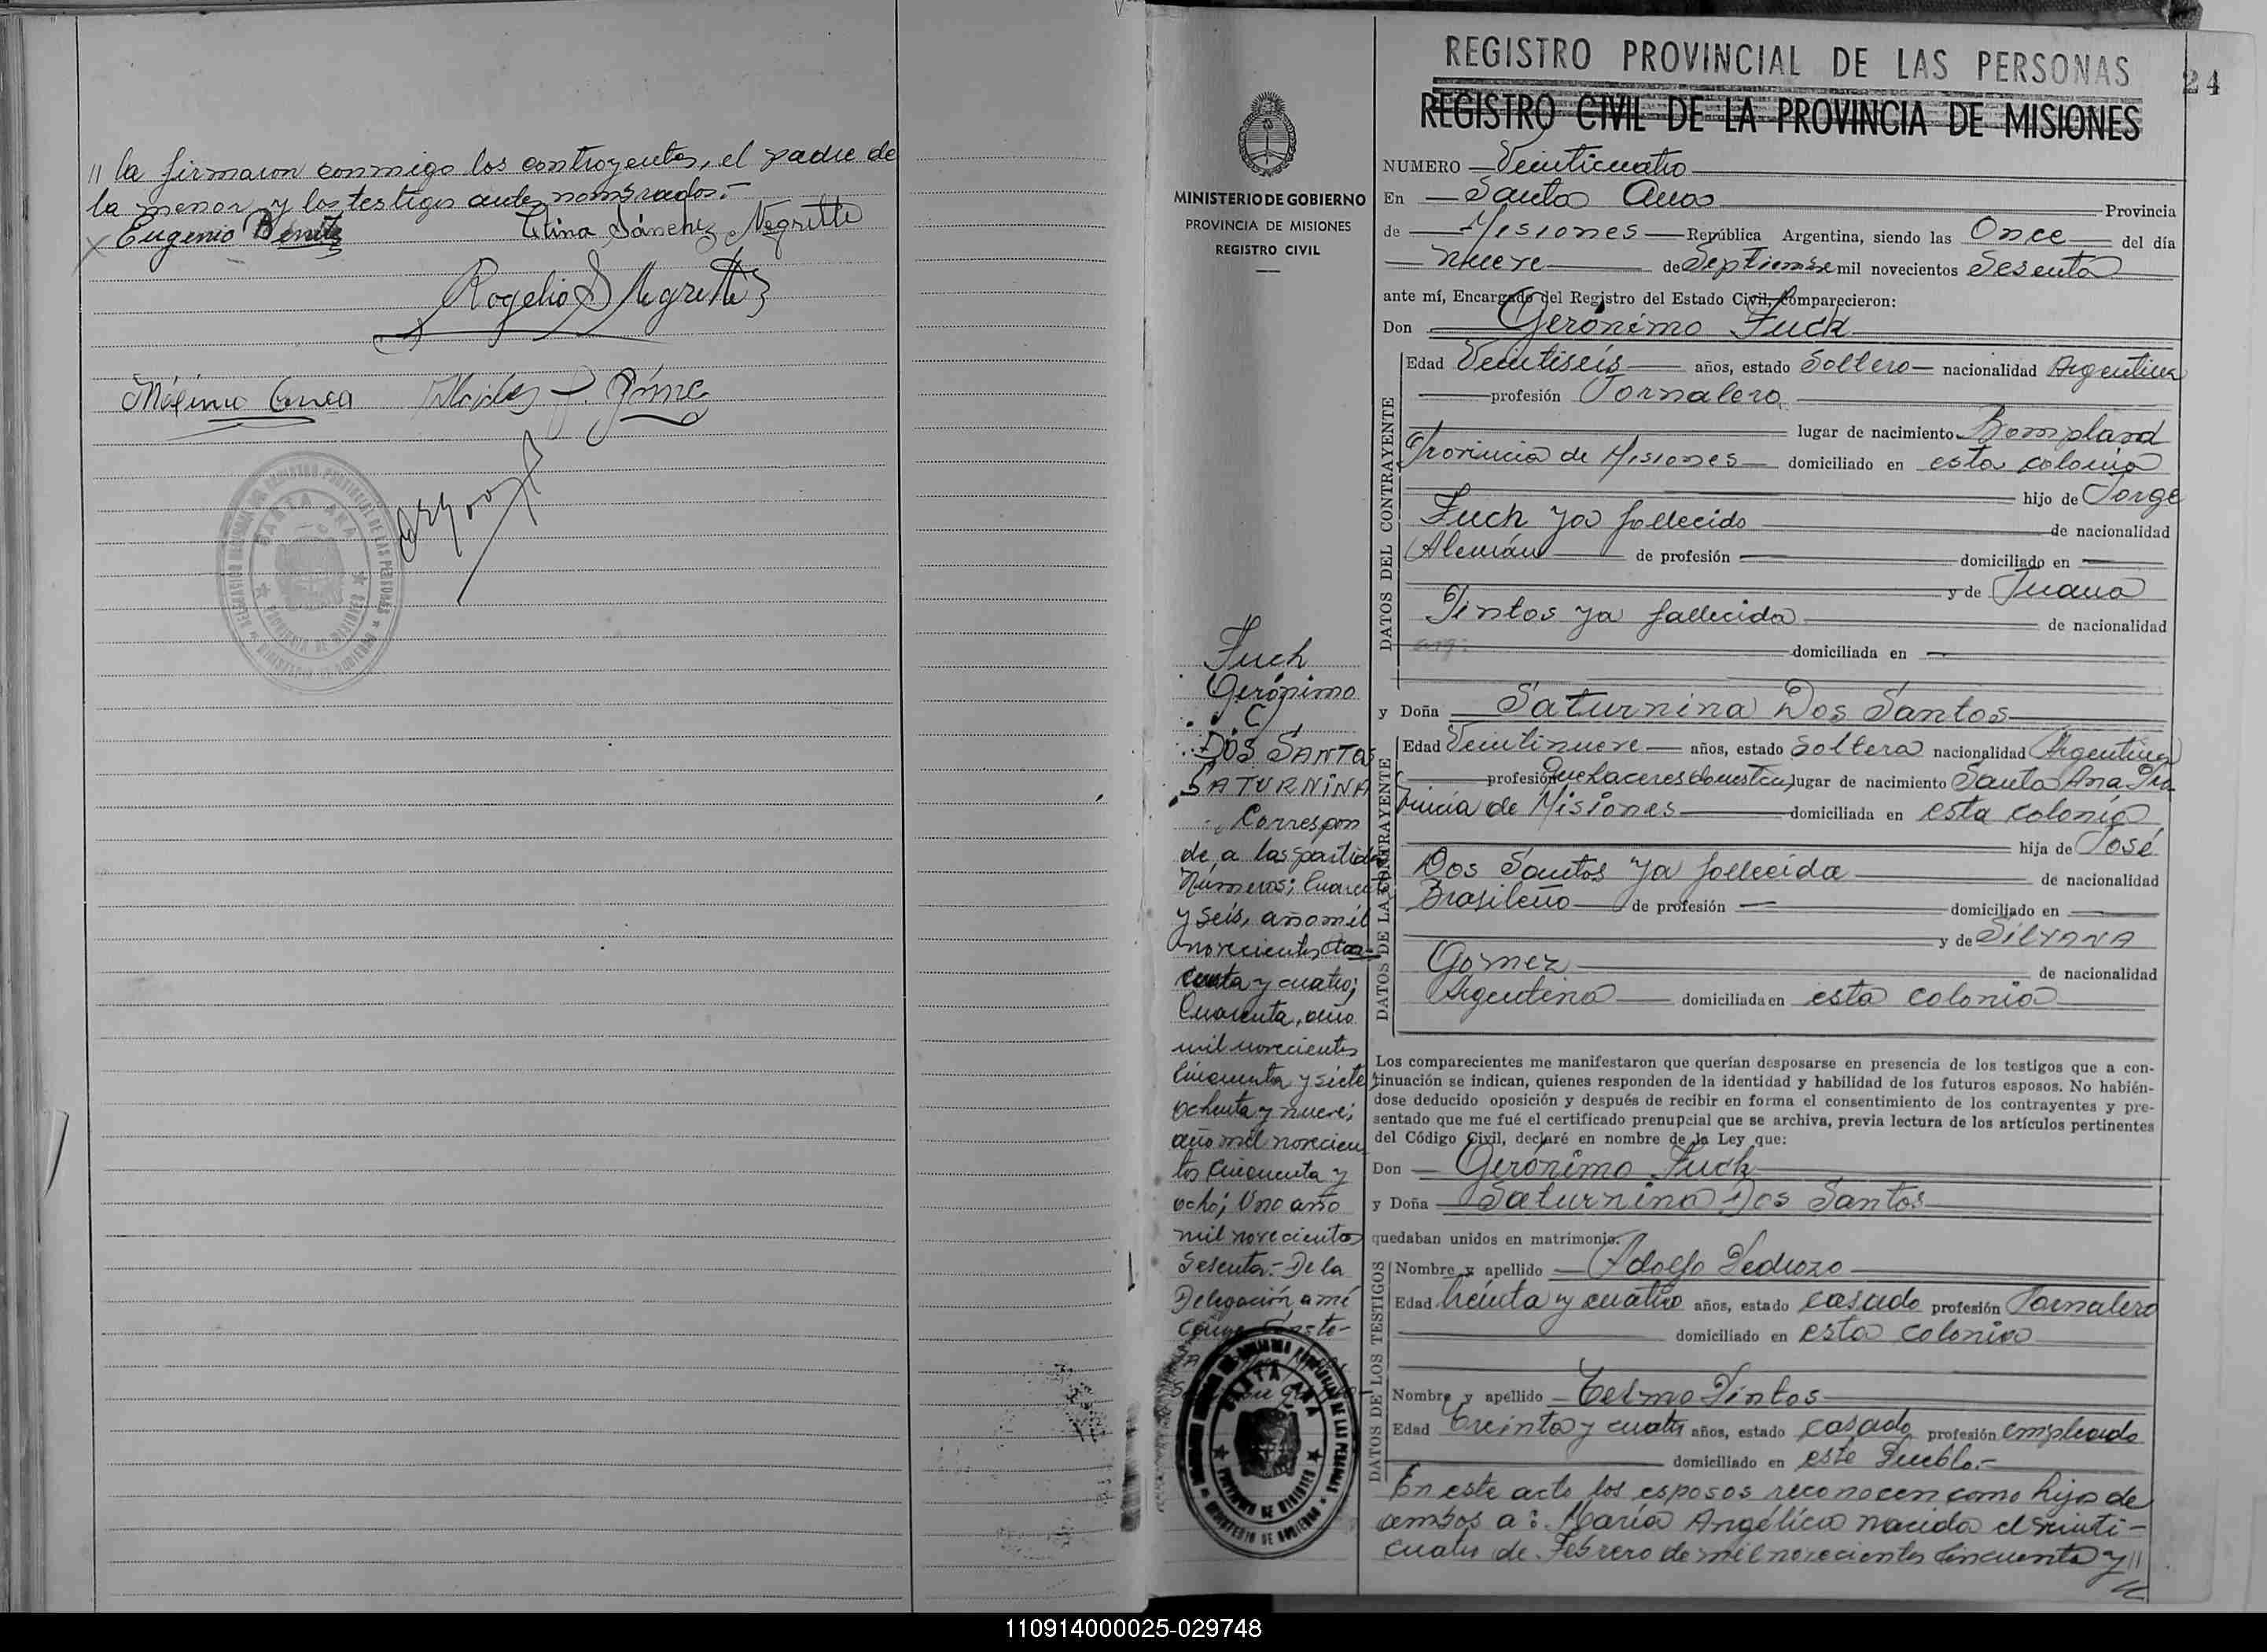 // la firmaron conmigo los contrayentes, el padre de
la menor y los testigos antes nombrados.-
x Eugenio Benitez Elina Sánchez Negrette
Rogelio S Negrette
Máximo
SANTA ANA
REGISTRO PROVINCIAL DE LAS PERSONAS
24
REGISTRO CIVIL DE LA PROVINCIA DE MISIONES
MINISTERIO DE GOBIERNO
PROVINCIA DE MISIONES
REGISTRO CIVIL
NUMERO Veinticuatro
En Santa Ana Provincia
de Misiones República Argentina, siendo las Once del día
nueve de Septiembre mil novecientos Sesenta
ante mí, Encargado del Registro del Estado Civil, comparecieron:
Don Gerónimo Fuch
DATOS DEL CONTRAYENTE
Edad Veintiseis años, estado Soltero nacionalidad Argentina
profesión Jornalero
lugar de nacimiento Bompland
Provincia de Misiones domiciliado en esta colonia
hijo de Jorge
Fuch ya fallecido de nacionalidad
Alemán de profesión domiciliado en
y de Juana
Pintos ya fallecida de nacionalidad
arg: domiciliada en
y Doña Saturnina Dos Santos
DATOS DE LA CONTRAYENTE
Edad Veintinueve años, estado Soltera nacionalidad Argentina
profesión Quehaceres domesticos lugar de nacimiento Santa Ana Pro
vincia de Misiones domiciliada en esta colonia
hija de José
Dos Santos ya fallecido de nacionalidad
Brasileño de profesión domiciliado en
y de Silvana
Gomez de nacionalidad
Argentina domiciliada en esta colonia
Los comparecientes me manifestaron que querían desposarse en presencia de los testigos que a con-
tinuación se indican, quienes responden de la identidad y habilidad de los futuros esposos. No habién-
dose deducido oposición y después de recibir en forma el consentimiento de los contrayentes y pre-
sentado que me fué el certificado prenupcial que se archiva, previa lectura de los artículos pertinentes
del Código Civil, declaré en nombre de la Ley que:
Don Gerónimo Fuch
y Doña Saturnina Dos Santos
quedaban unidos en matrimonio.
DATOS DE LOS TESTIGOS
Nombre y apellido Adolfo Pedrozo
Edad treinta y cuatro años, estado casado profesión Jornalero
domiciliado en esta colonia
Nombre y apellido Telmo Pintos
Edad treinta y cuatro años, estado casado profesión empleado
domiciliado en este Pueblo.-
En este acto los esposos reconocen como hijos de
ambos a: María Angélica nacida el veinti-
cuatro de Febrero de mil novecientos cincuenta y //
Fuch
Gerónimo
C/
DOS SANTOS
SATURNINA
Correspon
de, a las partidas
Números; Cuarenta
y seis, año mil
novecientos cin-
cuenta y cuatro;
Cuarenta, año
mil novecientos
Cincuenta y siete
ochenta y nueve;
año mil novecien
tos cincuenta y
ocho; Uno año
mil novecientos
Sesenta.- De la
Delegación a mi
cargo Conste-
SANTA ANA
110914000025-029748